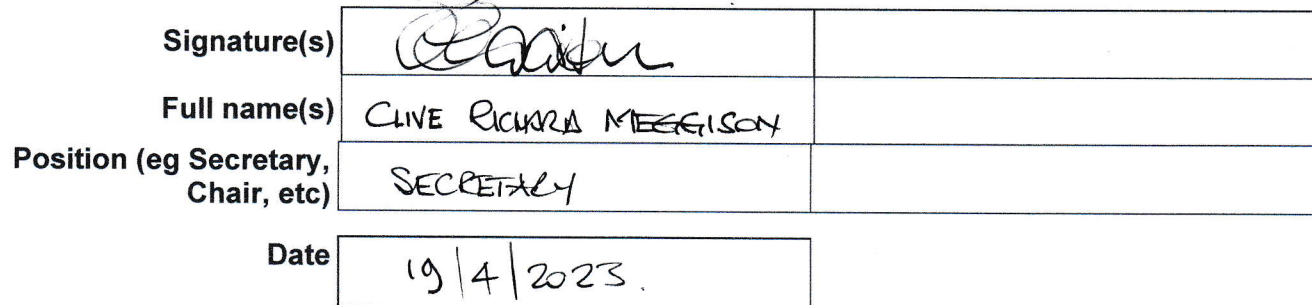 Signature(s)
Full name(s) CLIVE RICHARD MEGGISON
Position (eg Secretary,
Chair, etc) SECRETARY
Date 19/4/2023.